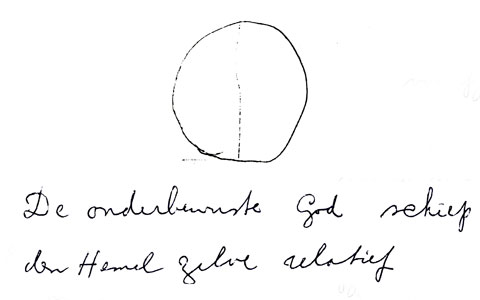 De onderbewuste God schiep
den Hemel zelve relatief